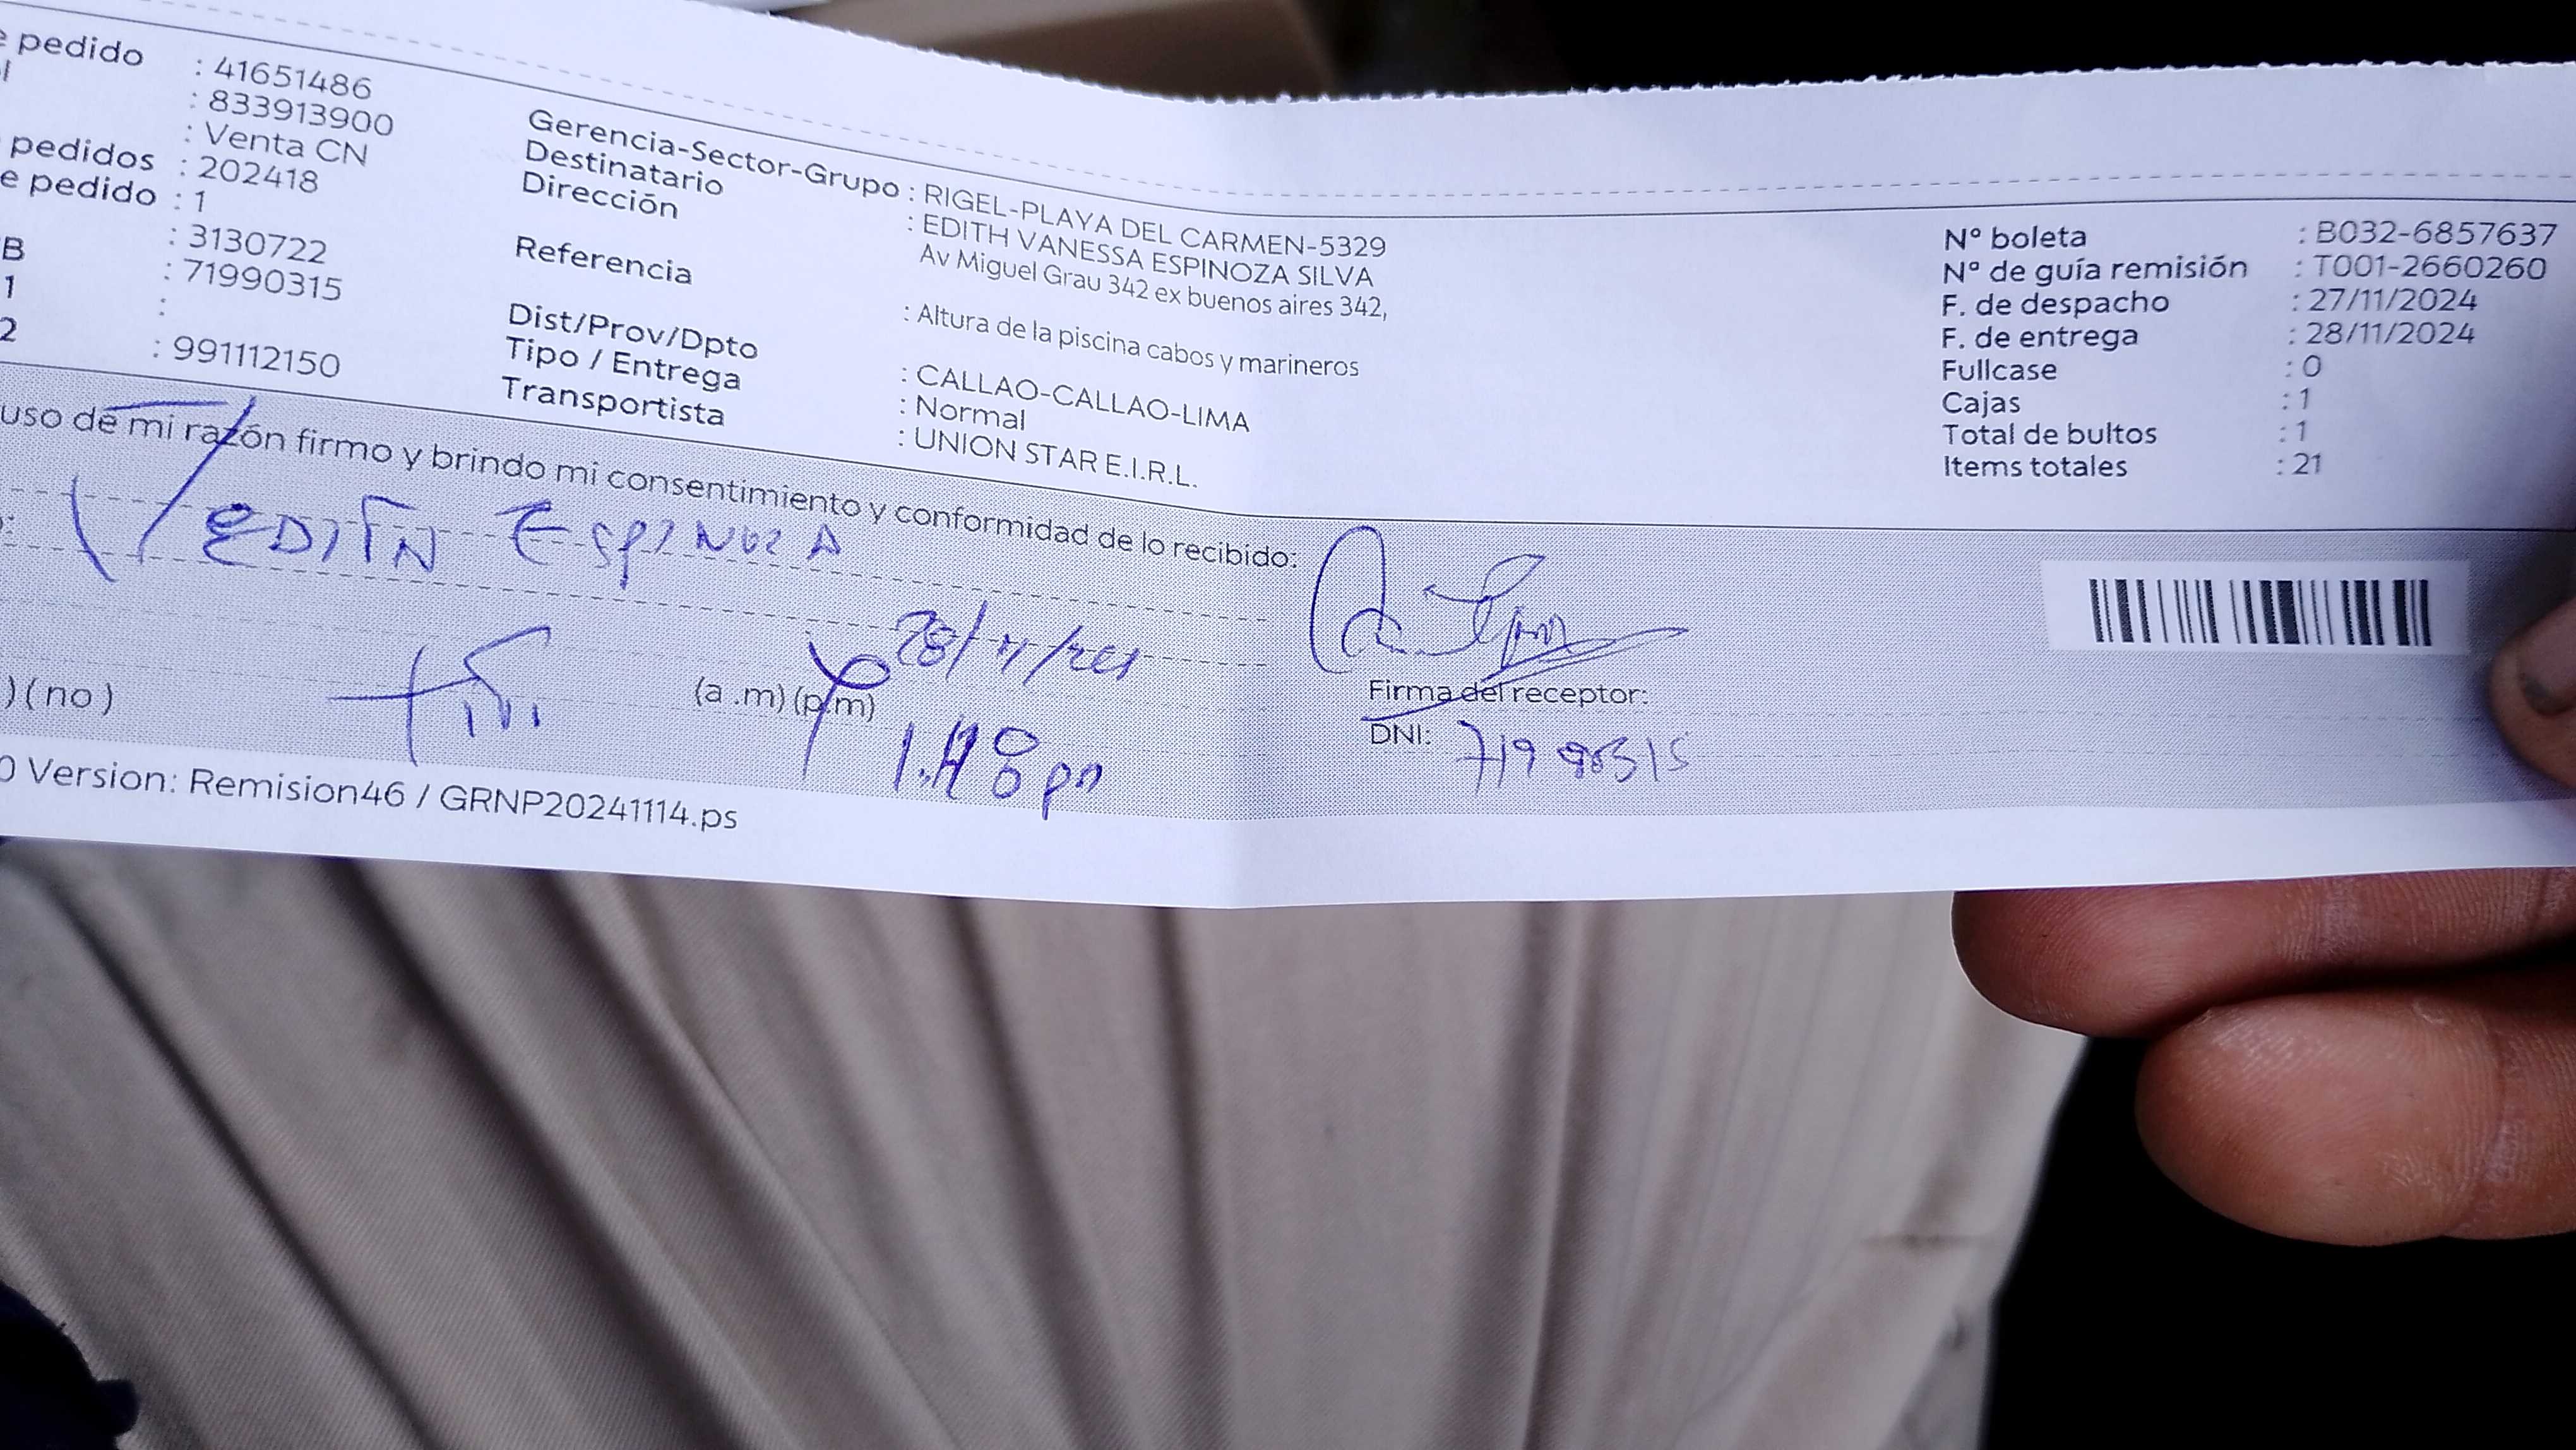 e pedido : 41651486
l : 833913900
: Venta CN
pedidos : 202418
e pedido : 1
B : 3130722
1 : 71990315
:
2 : 991112150
Gerencia-Sector-Grupo : RIGEL-PLAYA DEL CARMEN-5329
Destinatario : EDITH VANESSA ESPINOZA SILVA
Dirección Av Miguel Grau 342 ex buenos aires 342,
Referencia : Altura de la piscina cabos y marineros
Dist/Prov/Dpto : CALLAO-CALLAO-LIMA
Tipo / Entrega : Normal
Transportista : UNION STAR E.I.R.L.
Nº boleta : B032-6857637
Nº de guía remisión : T001-2660260
F. de despacho : 27/11/2024
F. de entrega : 28/11/2024
Fullcase : 0
Cajas : 1
Total de bultos : 1
Items totales : 21
uso de mi razón firmo y brindo mi consentimiento y conformidad de lo recibido:
EDITH ESPINOZA
28/11/
) (no) (a .m) (p.m)
1:48 pm
Firma del receptor:
DNI: 71990315
0 Version: Remision46 / GRNP20241114.ps